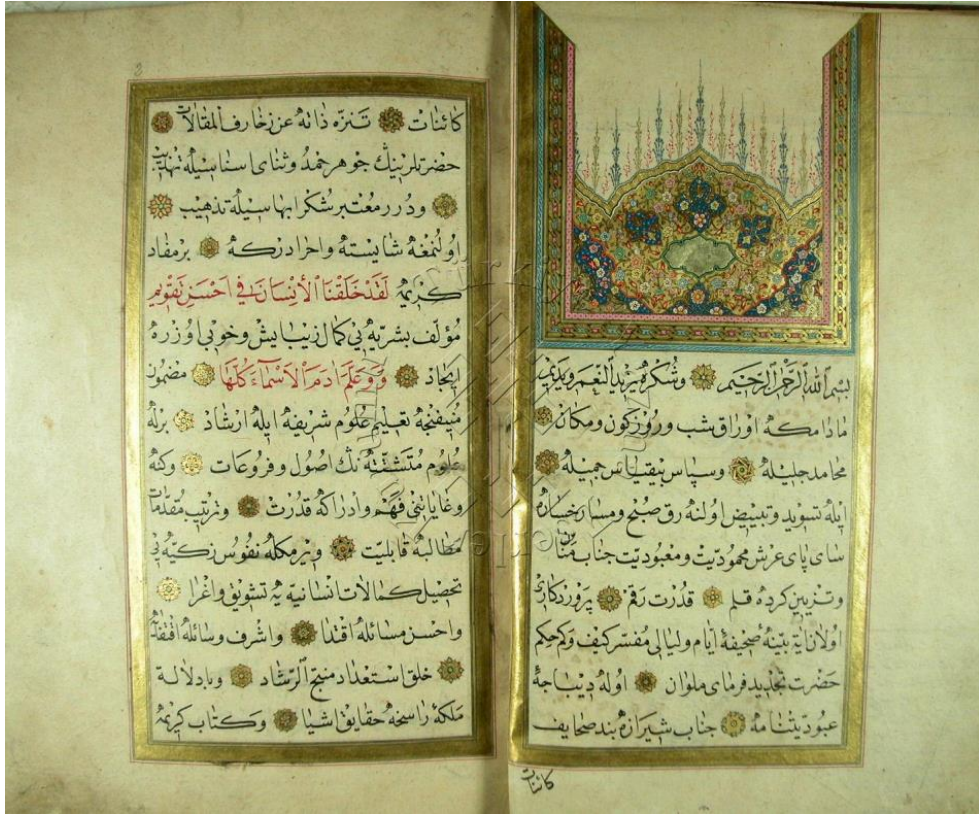 بسم الله الرحمن الرحيم وشكره يزيد النعم ويديم
مادامكه اوراق شب وروز كون ومكان
محامد جليله وسپاس بيقياس جميله
ايله تسويد وتبييض اولنه رق صبح ومسا رخساره
ساى پاى عرش محموديت ومعبوديت جناب
وتزيين كرده قلم قدرت رقم پروردكارى
اولان آية بينه صحيفه ايام وليالى مفسر كيف وكم حكم
حضرت تجديد فرماى ملوان اوله ديباجه
عبوديتنامه جناب شيرازه بند صحايف
كائنات
2
كائنات تنزه ذاته عن زخارف المقالات
حضرتلرينك جوهر حمد وثناى اسناسيله تهذيب
ودرر معتبر شكر ابهاسيله تذهيب
اولنمغه شايسته واحرادركه برمفاد
كريمه لَقَدْ خَلَقْنَا الْأِنْسَانَ فِي اَحْسَنِ تَقْوِيمٍ
مؤلف بشريه يى كمال زيبايش وخوبى اوزره
ايجاد وَعَلَّمَ اٰدَمَ الْاَسْمَاءَ كُلَّهَا مضمون
منيفنجه تعليم علوم شريفه ايله ارشاد برله
علوم متشتته نك اصول وفروعات وكنه
وغاياتنى فهم وادراكه قدرت وترتيب مقدمات
مطالبه قابليت ويرمكله نفوس زكيه يى
تحصيل كمالات انسانيه يه تشويق واغرا
واحسن مسائله اقتدا واشرف وسائله
خلق استعداد منتج الرشاد وبادلالة
ملكه راسخه حقايق اشيا وكتاب كريمه